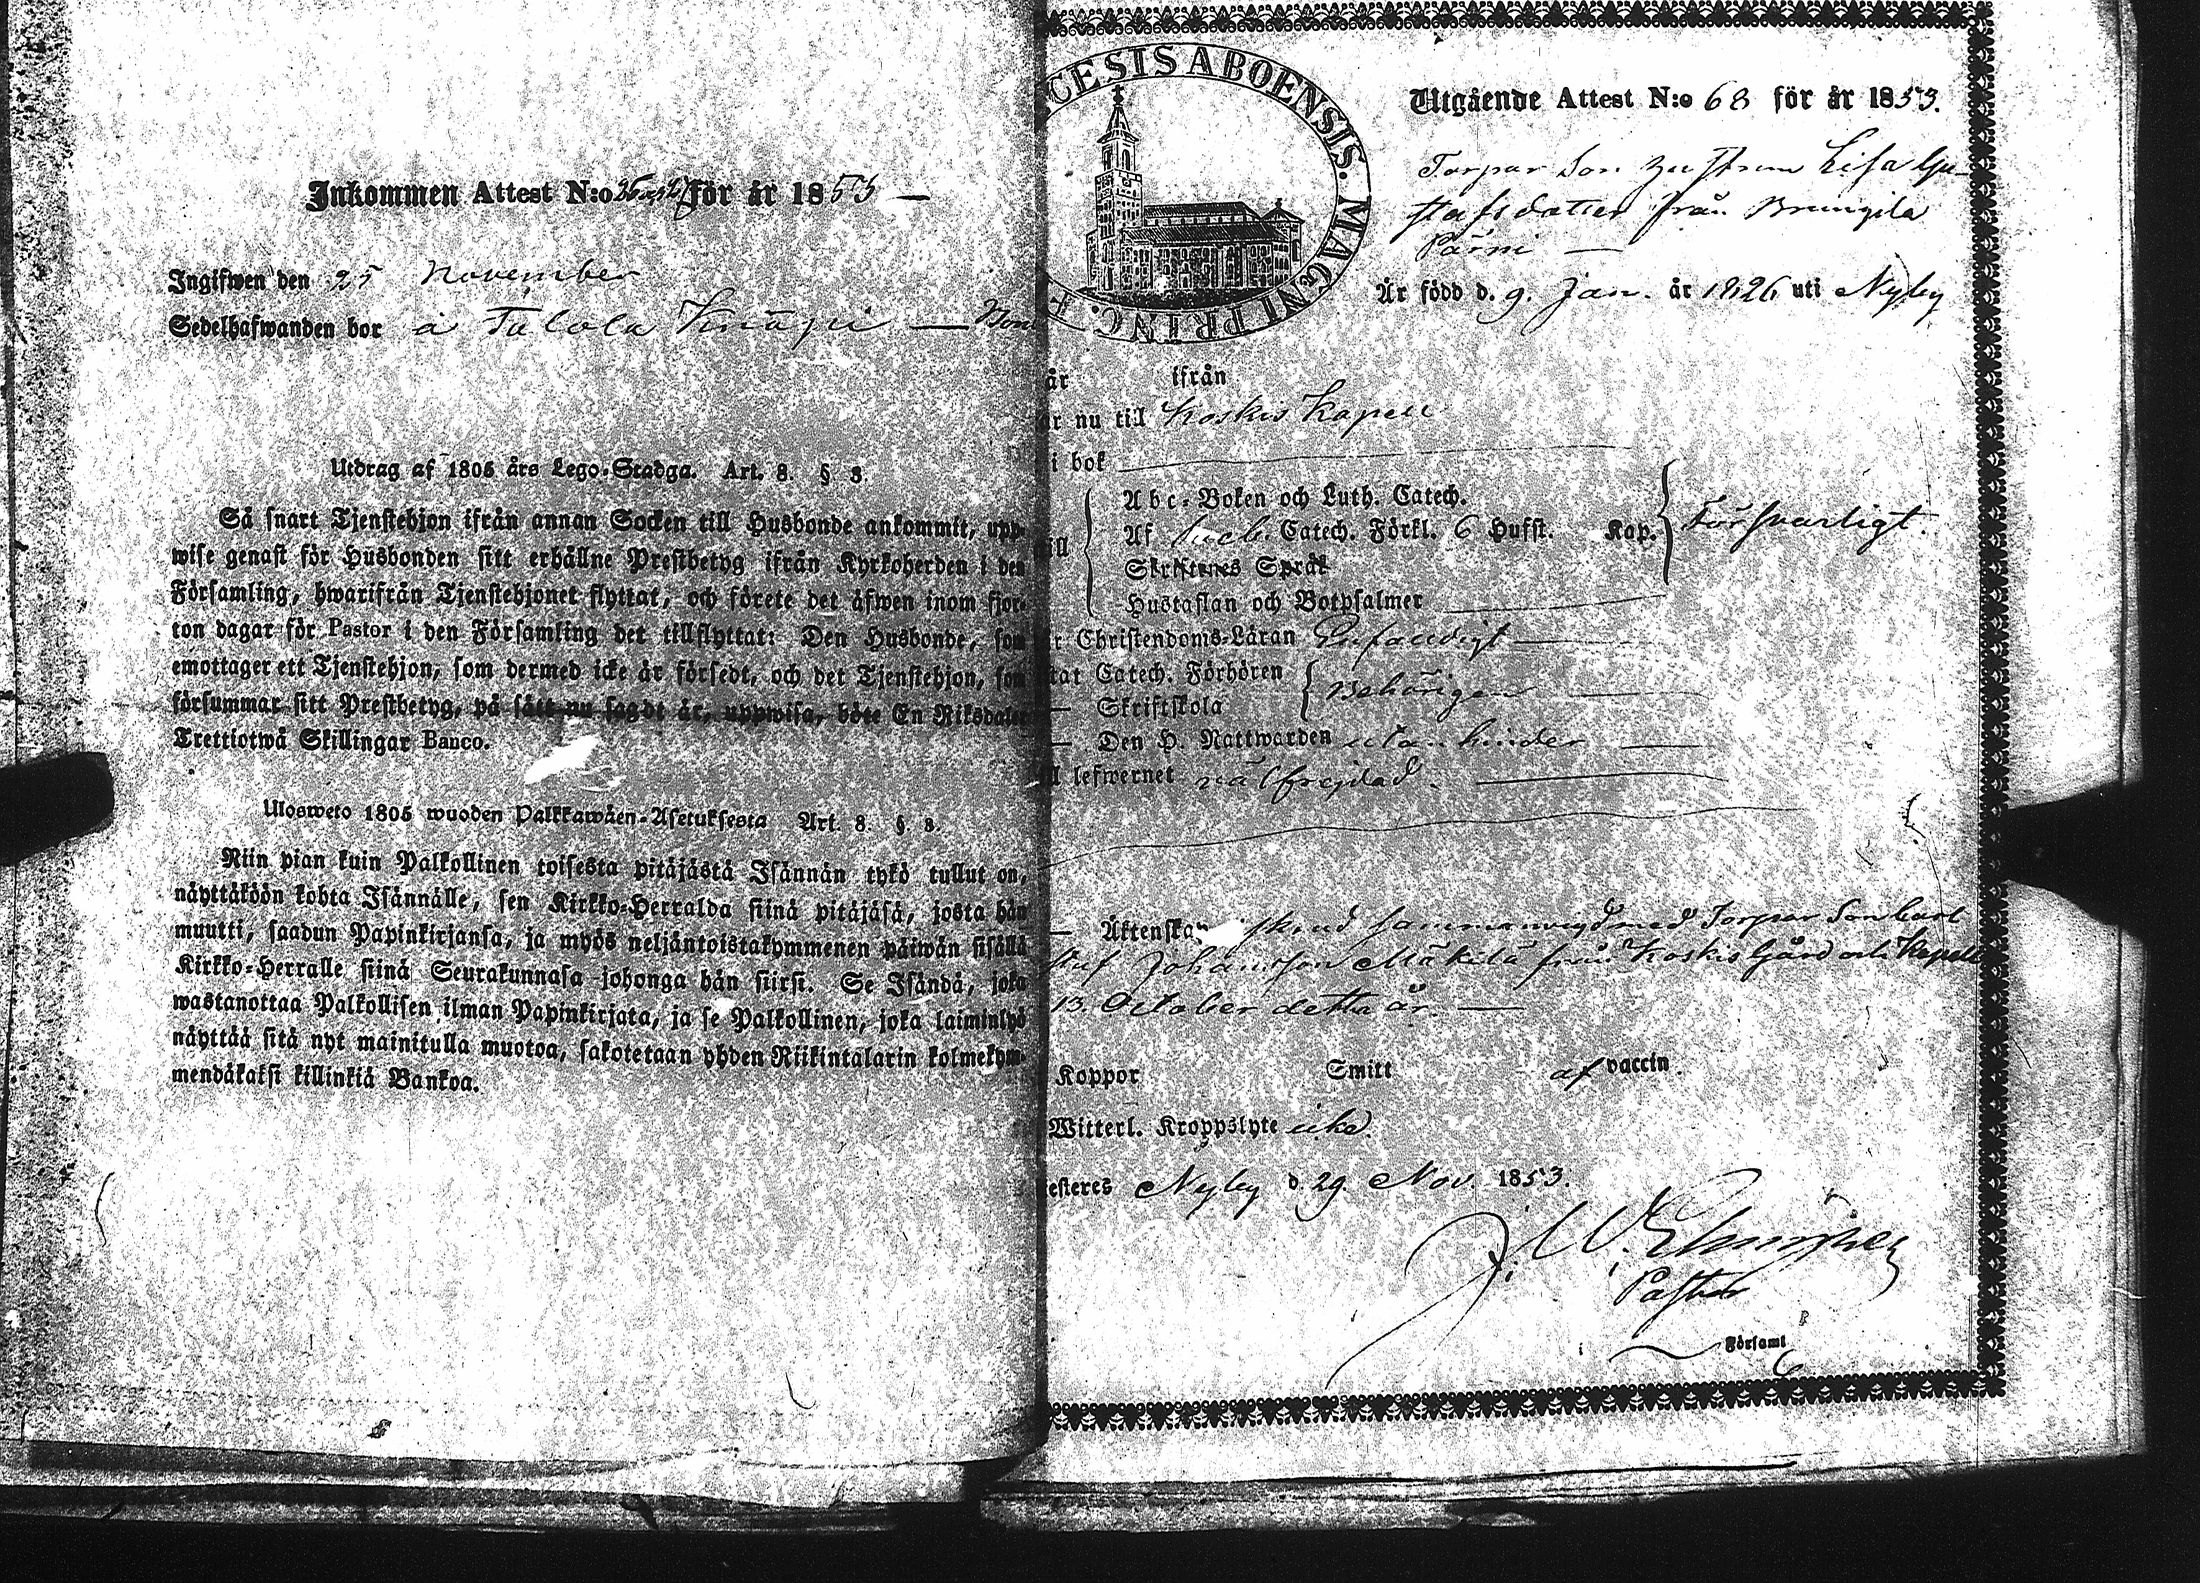 Inkommen Attest N:o för år 1853 —
Ingifwen den 25 November
Sedelhafwanden bor å Talola Knäpi —
Utdrag af 1805 års Lego-Stadga. Art. 8. § 8.
Så snart Tjenstehjon ifrån annan Socken till Husbonde ankommit, upp-
wise genast för Husbonden sitt erhållne Prestbetyg ifrån Kyrkoherden i den
Församling, hwarifrån Tjenstehjonet flyttat, och förete det äfwen inom fjor-
ton dagar för Pastor i den Församling det tillflyttat: Den Husbonde, som
emottager ett Tjenstehjon, som dermed icke är försedt, och det Tjenstehjon, som
försummar sitt Prestbetyg, på sätt nu sagdt är, uppwisa, böte En Riksdaler
Trettiotwå Skillingar Banco.
Ulosweto 1805 wuoden Palkkawäen-Asetuksesta Art. 8. §. 8.
Niin pian kuin Palkollinen toisesta pitäjästä Isännän tykö tullut on,
näyttäköön kohta Isännälle, sen Kirkko-Herralda siinä pitäjäsä, josta hän
muutti, saadun Papinkirjansa, ja myös neljäntoistakymmenen päiwän sisällä
Kirkko-Herralle siinä Seurakunnasa johonga hän siirsi. Se Isändä, joka
wastanottaa Palkollisen ilman Papinkirjata, ja se Palkollinen, joka laiminlyö
näyttää sitä nyt mainitulla muotoa, sakotetaan yhden Riikintalarin kolmekym-
mendäkaksi killinkiä Bankoa.
CESIS ABOENSIS. MAGNI PRINC. F
Utgående Attest N:o 68 för år 1853.
Torpar Son Hustrun Lisa Gu-
stafsdotter från Brungila
Pärni —
Är född d. 9. Jan. år 1826 uti Nyby
år ifrån
ar nu till Koskis Kapell
i bok
Abc-Boken och Luth. Catech.
Af Catech. Förkl. 6 Hufst. Kap. Försvarligt.
ill
Skriftenes Språk
Hustaflan och Botpsalmer
r Christendoms-Läran Enfaldigt
tat Catech. Förhören
Behörigen
— Skriftskola
— Den H. Nattwarden utan hinder
ll lefwernet välfrejdad.
— Äktenska sammanvigd med Torpar Son Carl
staf Johansson Mäkilä från Koskis Gård och Kapell
13. October detta år. —
Koppor Smitt af vaccin.
Witterl. Kroppslyte icke.
esteres Nyby d. 29. Nov. 1853.
J. W.
Pastor
i Församl